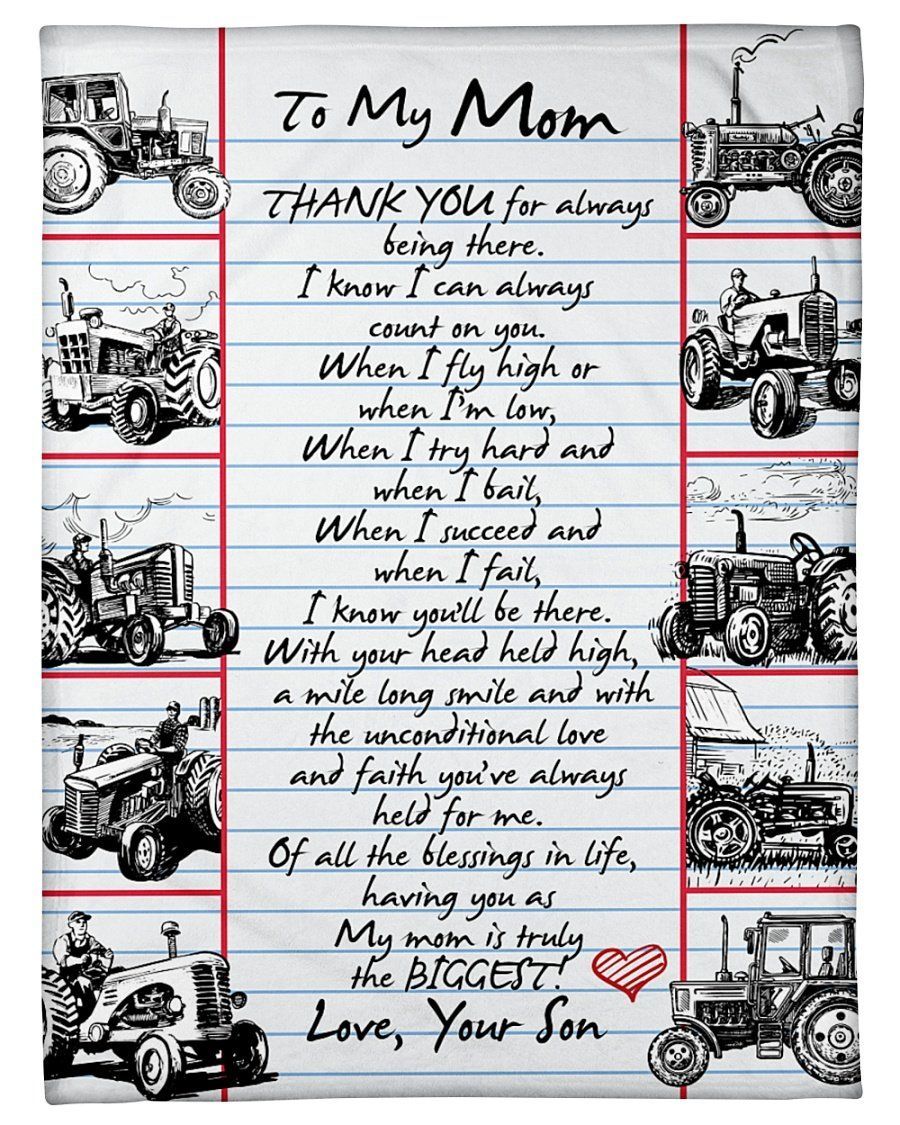 To My Mom
THANK YOU for always
being there.
I know I can always
count on you.
When I fly high or
when I'm low,
When I try hard and
when I bail,
When I succeed and
when I fail,
I know you'll be there.
With your head held high,
a mile long smile and with
the unconditional love
and faith you've always
held for me.
Of all the blessings in life,
having you as
My mom is truly
the BIGGEST!
Love, Your Son